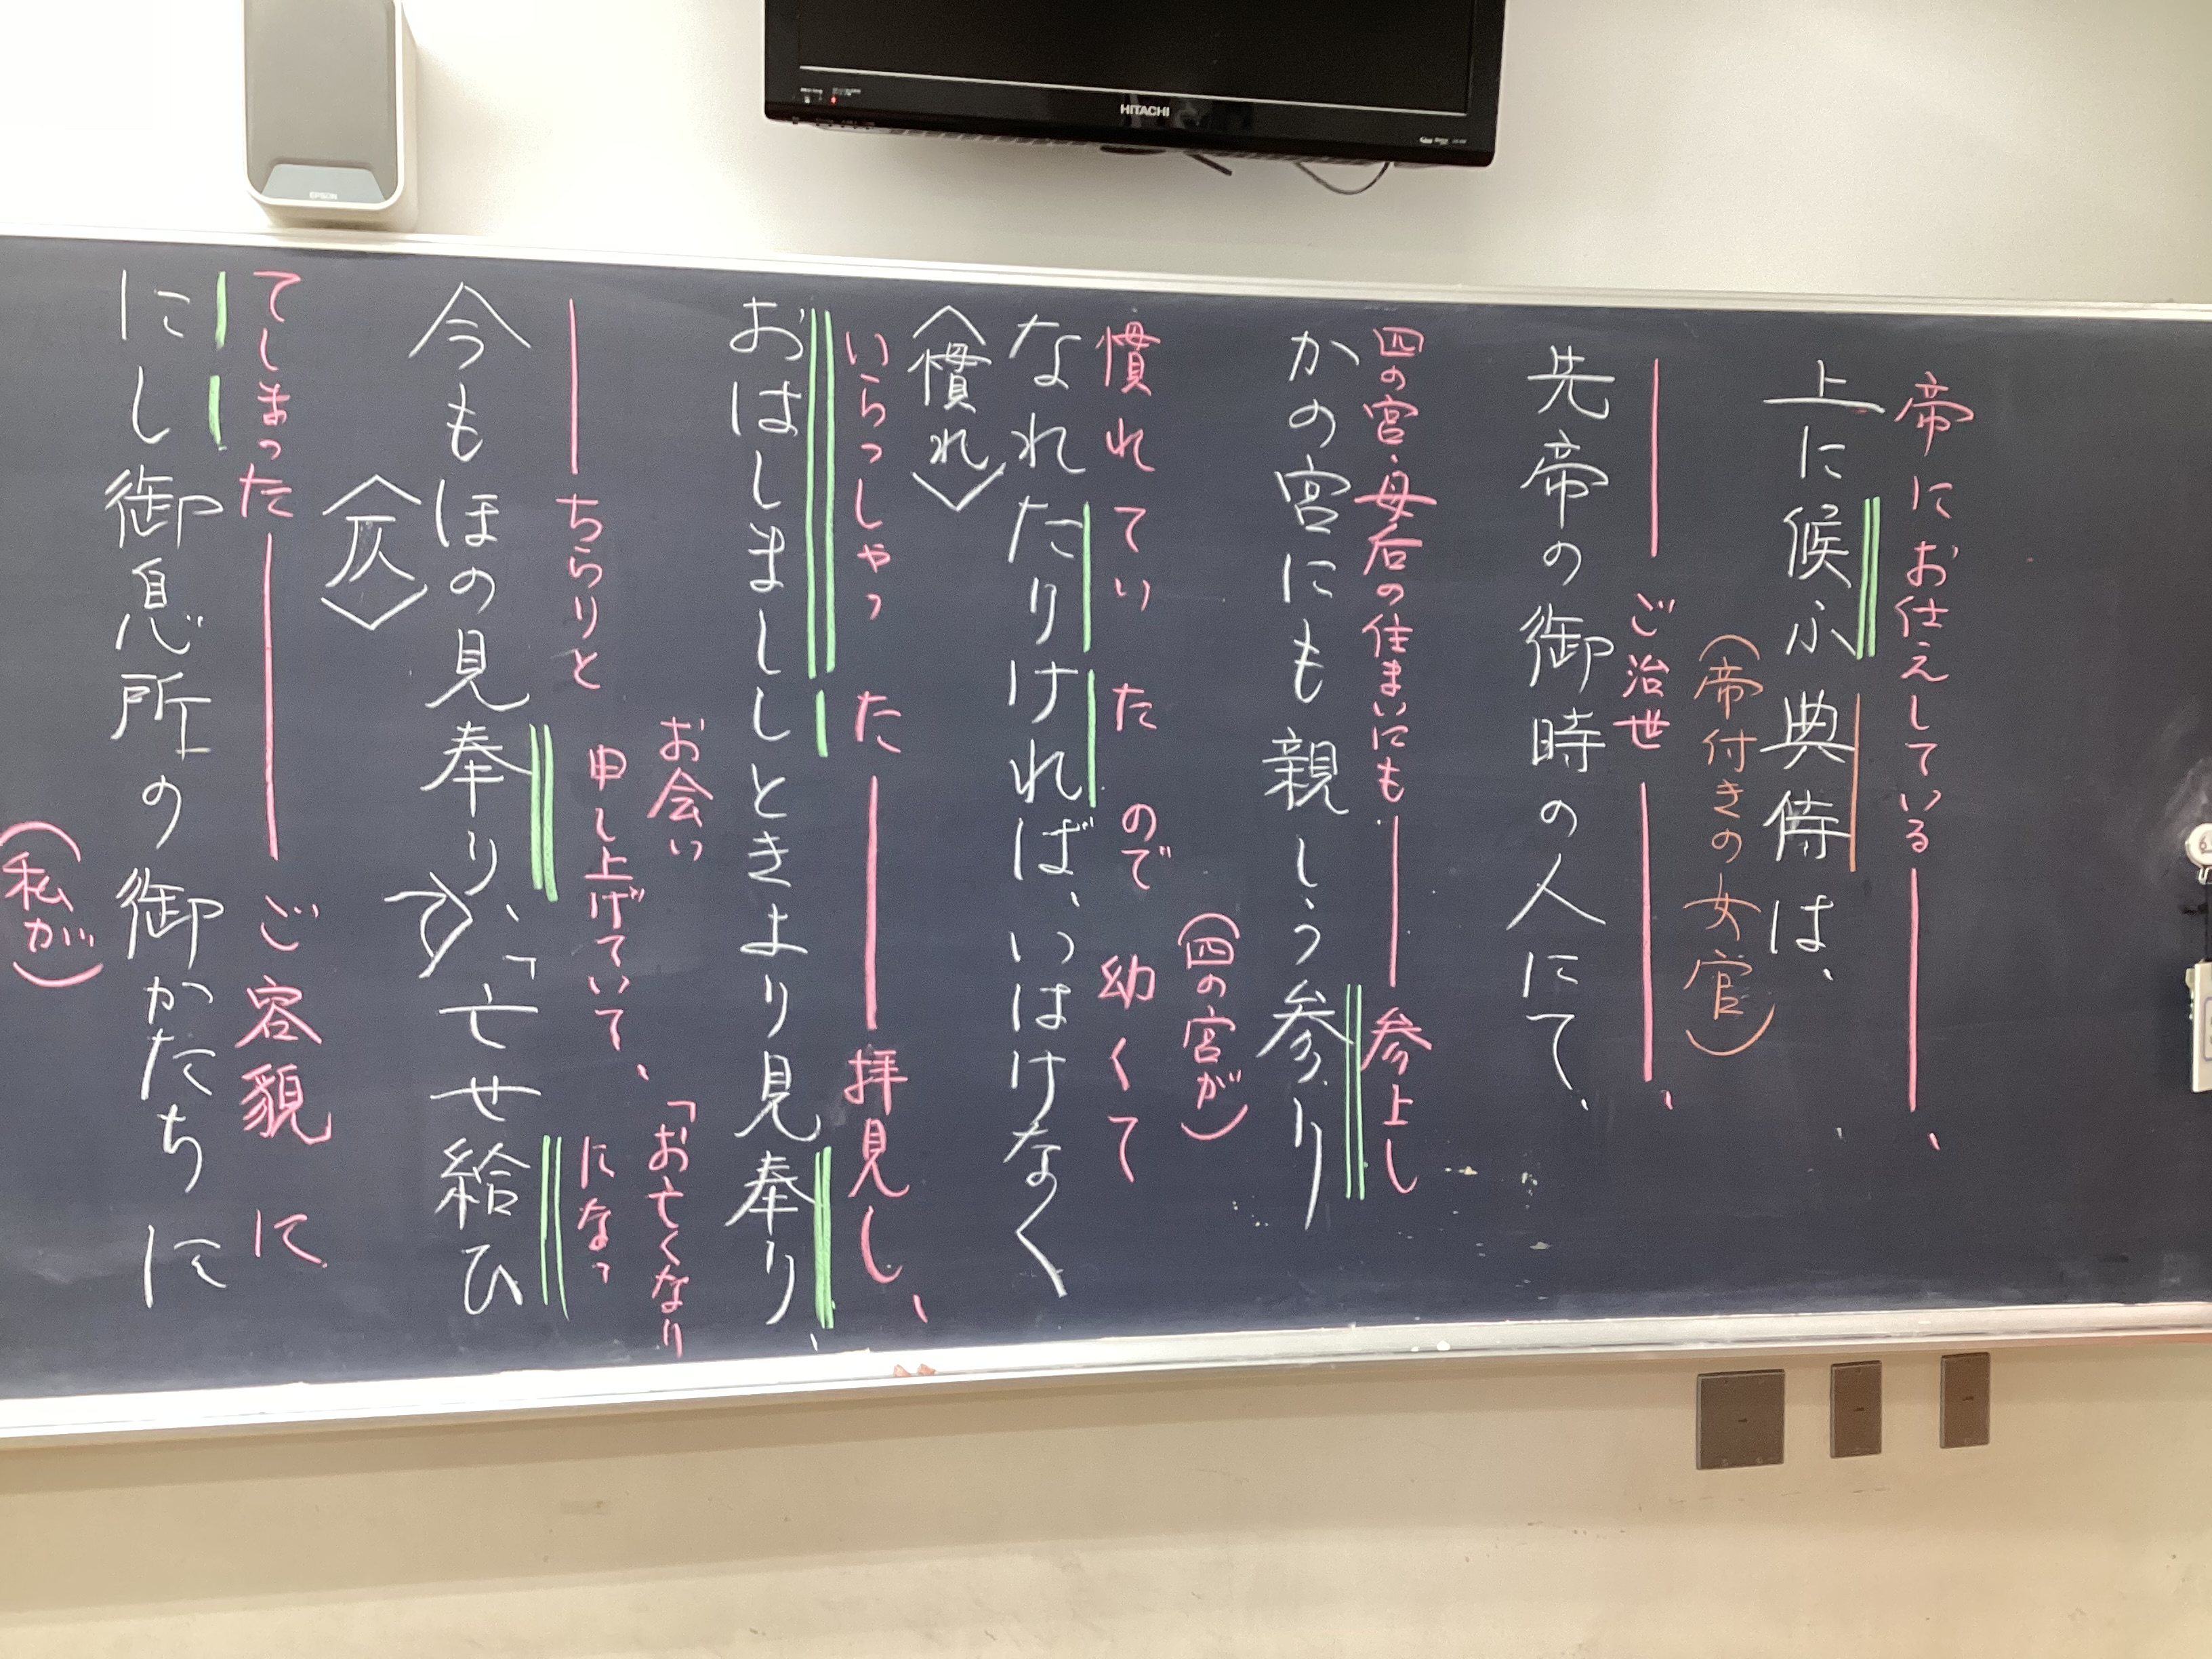 HITACHI
EPSON
帝にお仕えしている、
上に候ふ典侍は、
(帝付きの女官)
ご治世、
先帝の御時の人にて、
四の宮・母后の住まいにも参上し
かの宮にも親しう参り
(四の宮が)
慣れていたので幼くて
なれたりければ、いはけなく
〈慣れ〉
いらっしゃった拝見し、
おはしまししときより見奉り、
お会い「お亡くなり
ちらりと申し上げていて、になっ
今もほの見奉り、「亡せ給ひ
て
〈仄〉
てしまったご容貌に
にし御息所の御かたちに
(私が)